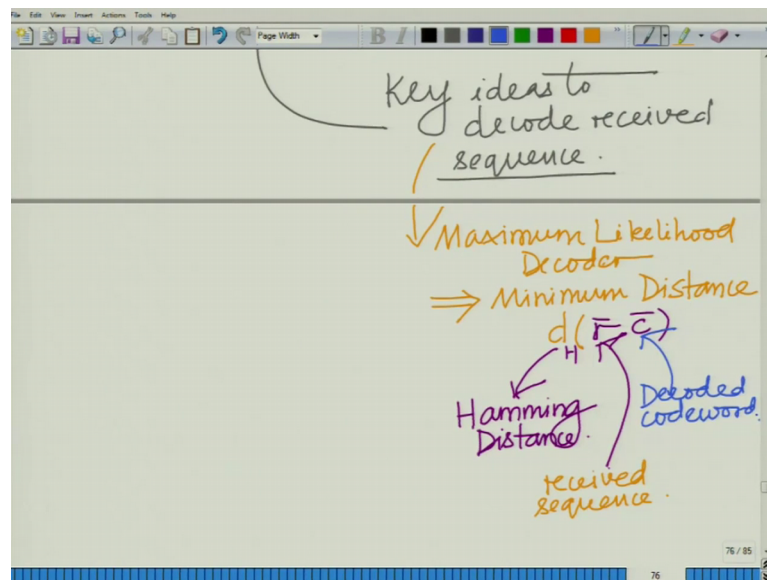 File Edit View Insert Actions Tools Help
Page Width
B I
Key ideas to
decode received
sequence.
Maximum Likelihood
Decoder
⇒ Minimum Distance
d_H( r̄, c̄ )
Hamming
Distance.
Decoded
codeword.
received
sequence.
76 / 85
76